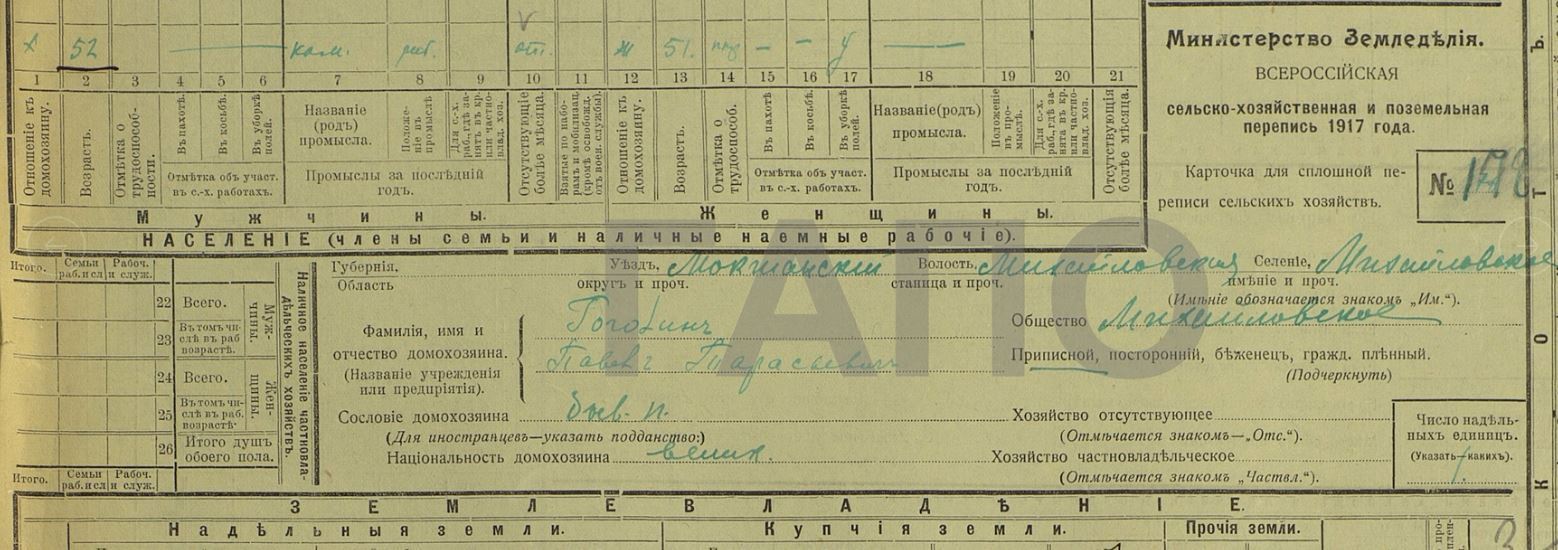 х 52 кам. раб. отс. ж 51. – – У
1 2 3 4 5 6 7 8 9 10 11 12 13 14 15 16 17 18 19 20 21
Отношеніе къ домохозяину.
Возрастъ.
Отмѣтка о трудоспособности.
Въ пахотѣ.
Въ косьбѣ.
Въ уборкѣ полей.
Отмѣтка объ участ. въ с.-х. работахъ.
Названіе (родъ) промысла.
Положеніе въ промыслѣ
Промыслы за послѣдній годъ.
Отсутствующіе болѣе мѣсяца.
Отношеніе къ домохозяину.
Возрастъ.
Отмѣтка о трудоспособ.
Въ пахотѣ
Въ косьбѣ.
Въ уборкѣ полей.
Отмѣтка объ участ. въ с.-х. работахъ.
Названіе(родъ) промысла.
Положеніе въ промыслѣ.
Промыслы за послѣдній годъ.
Отсутствующія болѣе мѣсяца.
Мужчины. Женщины.
НАСЕЛЕНІЕ (члены семьи и наличные наемные рабочіе).
Министерство Земледѣлія.
ВСЕРОССІЙСКАЯ
сельско-хозяйственная и поземельная
перепись 1917 года.
Карточка для сплошной пе-
реписи сельскихъ хозяйствъ.
№
Итого. Семьи раб.и сл. Рабоч. и служ.
22 Всего.
23 Въ томъ числѣ въ раб возрастѣ.
Мужчины.
24 Всего.
25 Въ томъ числѣ въ раб. возрастѣ.
Женщины.
26 Итого душъ обоего пола.
Наличное населеніе частновладѣльческихъ хозяйствъ.
Итого. Семьи раб.и сл. Рабоч. и служ.
Губернія. Уѣздъ, Мокшанскій Волость, Михайловская Селеніе, Михайловское
Область округъ и проч. станица и проч. имѣніе и проч.
(Имѣніе обозначается знакомъ „Им.“).
Фамилія, имя и
отчество домохозяина.
(Названіе учрежденія
или предпріятія).
Павелъ Тарасьевич
Общество Михайловское
Приписной, посторонній, бѣженецъ, гражд. плѣнный.
(Подчеркнуть)
Сословіе домохозяина быв. п.
(Для иностранцевъ—указать подданство:)
Національность домохозяина велик.
Хозяйство отсутствующее
(Отмѣчается знакомъ—„Отс.“).
Хозяйство частновладѣльческое
(Отмѣчается знакомъ „Частвл.“).
Число надѣль-
ныхъ единицъ.
(Указать—какихъ).
ЗЕМЛЕВЛАДѢНІЕ.
Надѣльныя земли. Купчія земли. Прочія земли.
ГАПО